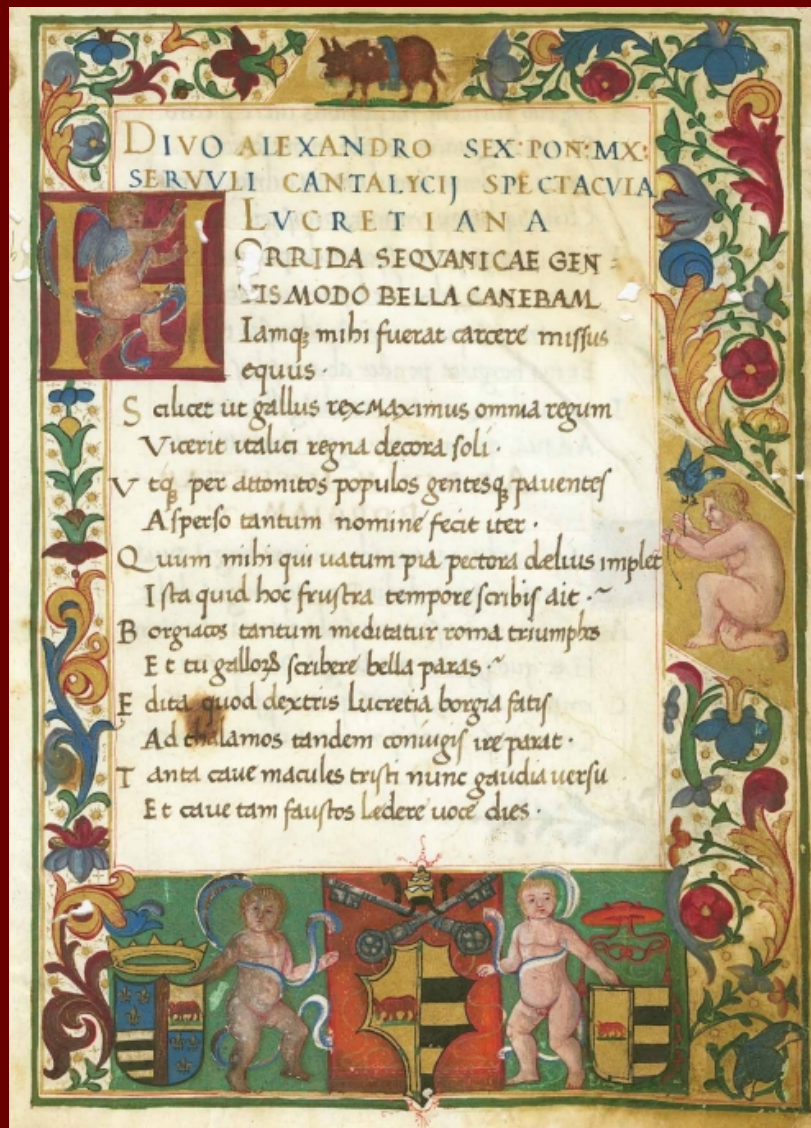 DIVO ALEXANDRO SEX: PON: MX:
SERVVLI CANTALYCIJ SPECTACVLA
LVCRETIANA
HORRIDA SEQVANICAE GEN=
TIS MODO BELLA CANEBAM
Iamq; mihi fuerat carcere missus
equus
Scilicet ut gallus rex maximus omnia regum
Vicerit italici regna decora soli.
Vtq; per attonitos populos gentesq; pauentes
Asperso tantum nomine fecit iter.
Quum mihi qui uatum pia pectora delius implet
Ista quid hoc frustra tempore scribis ait.~
Borgiacos tantum meditatur roma triumphos
Et tu galloꝝ scribere bella paras~
Edita quod dextris lucretia borgia fatis
Ad thalamos tandem coniugis ire parat.
Tanta caue macules tristi nunc gaudia uersu
Et caue tam faustos Ledere uoce dies.